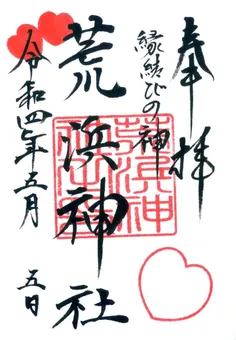 奉拝
縁結びの神
荒浜神社
令和四年五月
五日
荒浜神